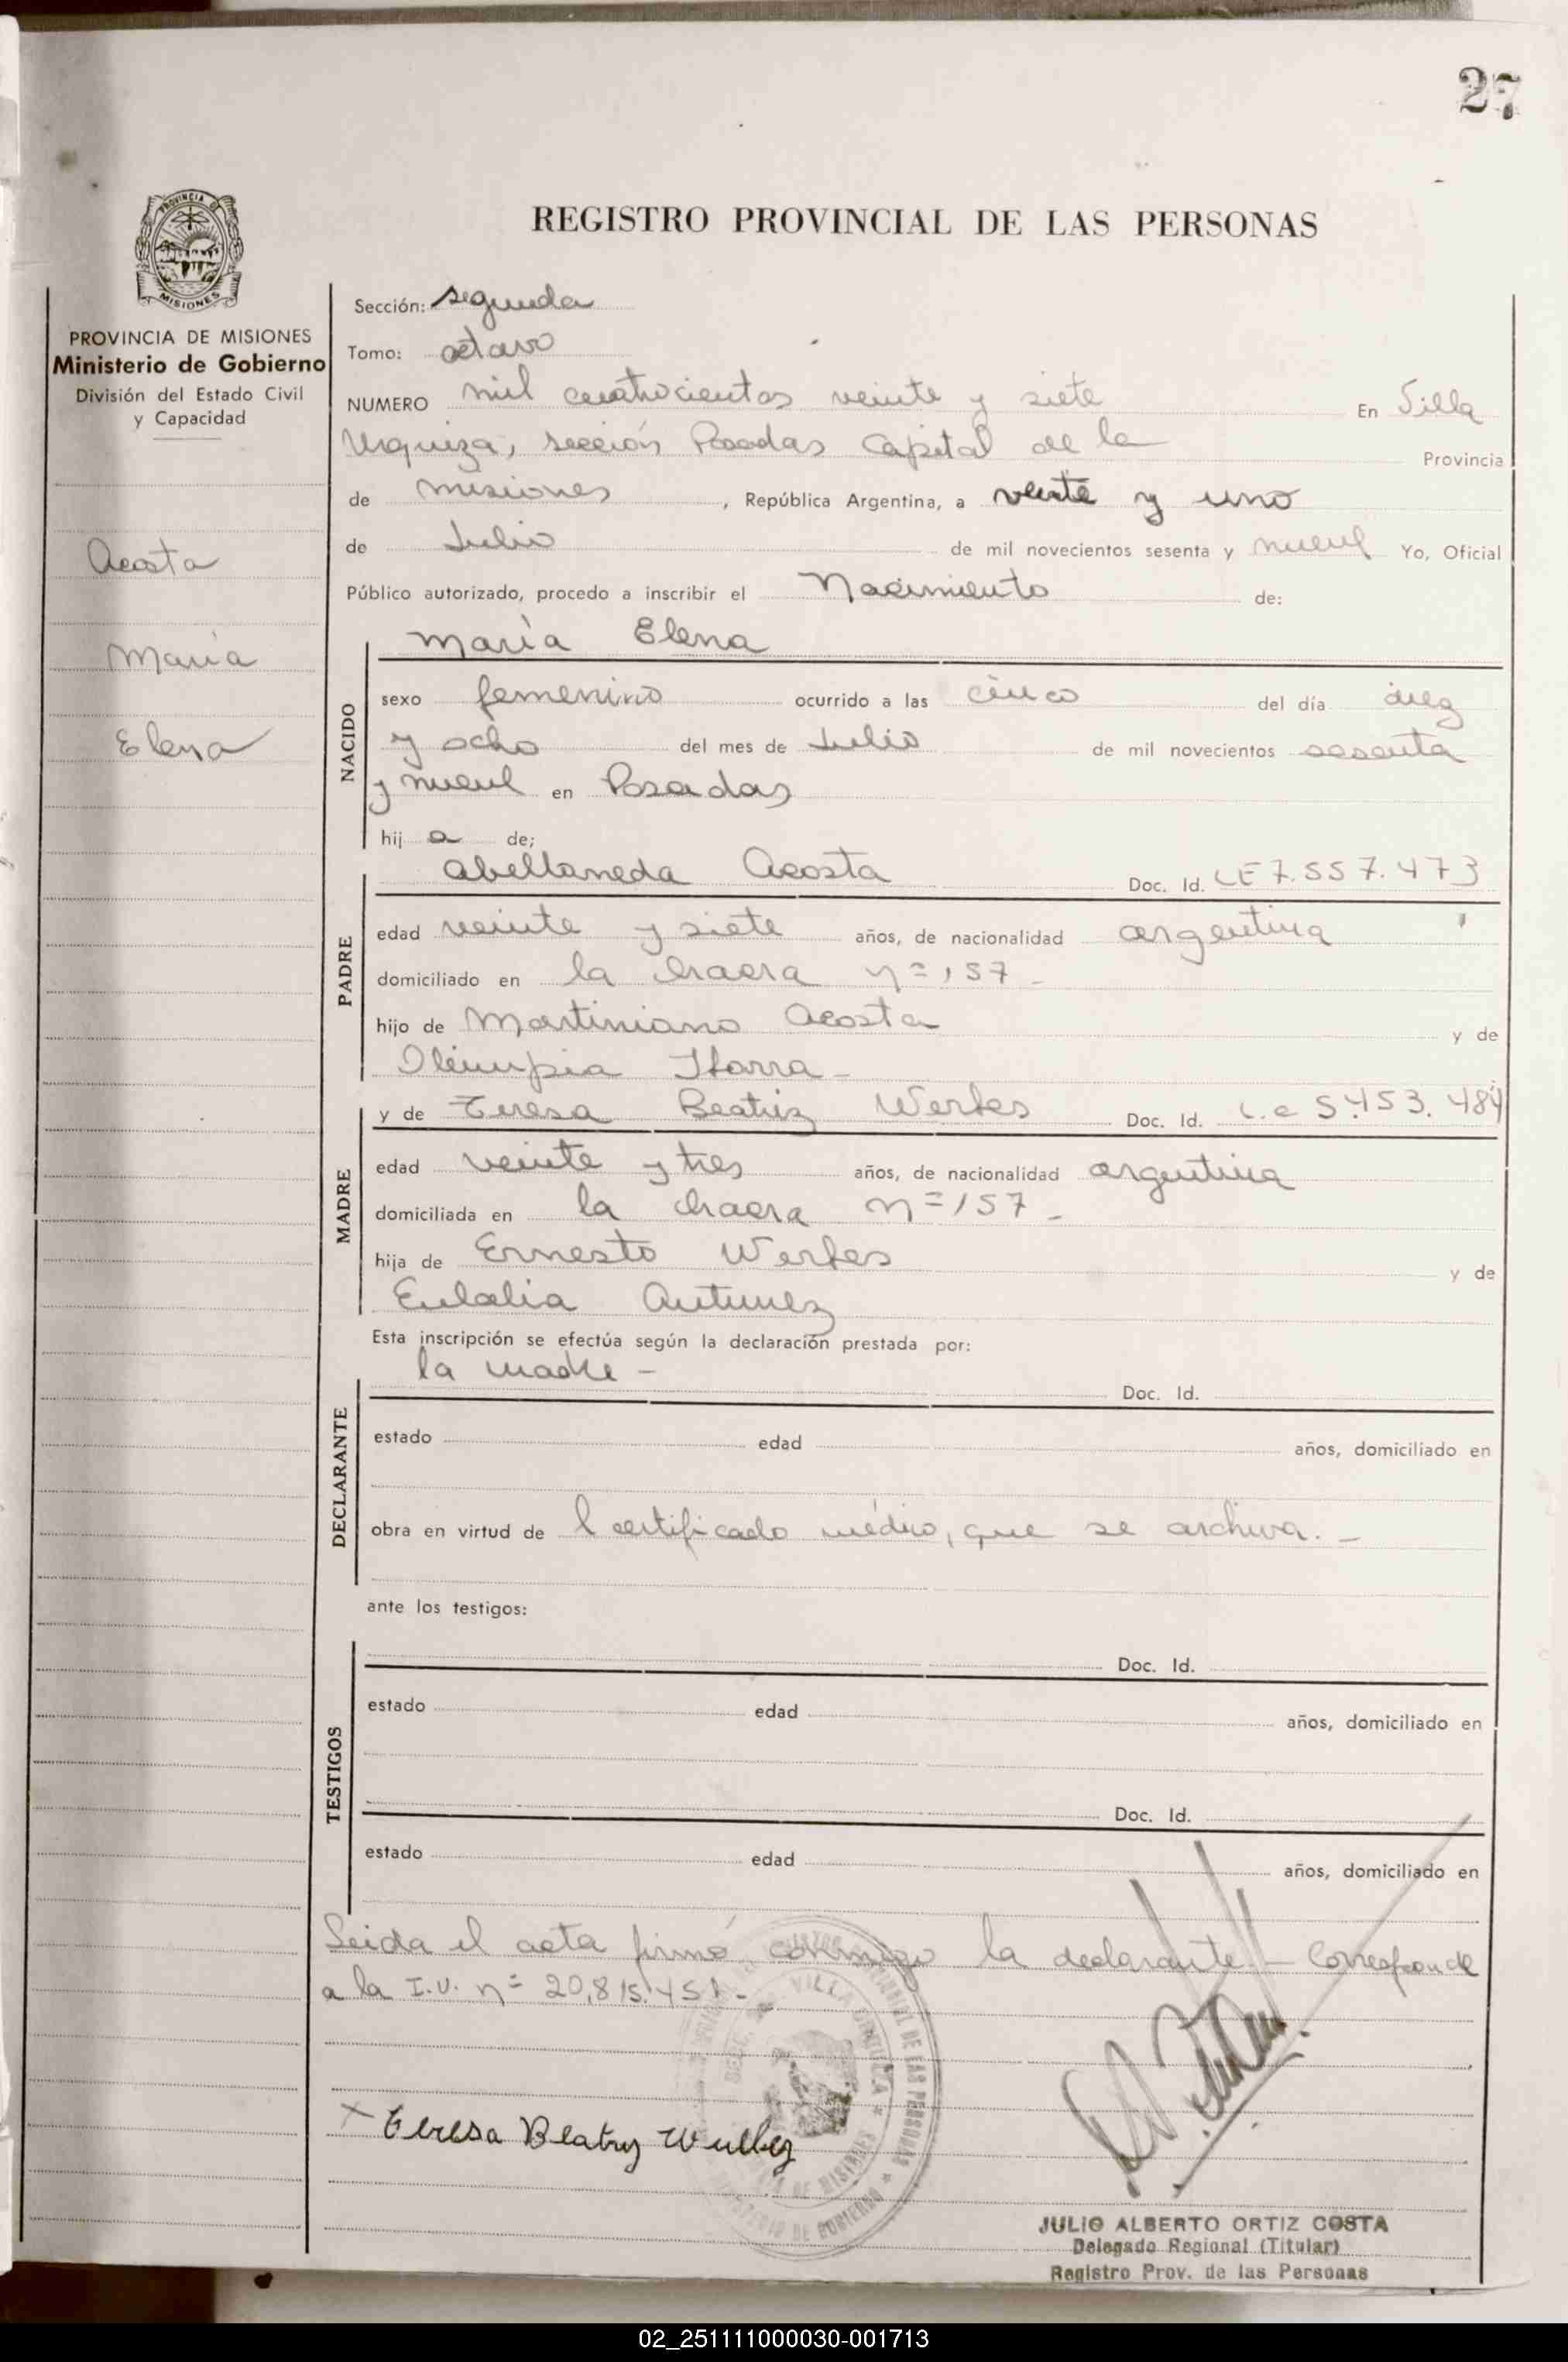 27
PROVINCIA DE
MISIONES
REGISTRO PROVINCIAL DE LAS PERSONAS
PROVINCIA DE MISIONES
Ministerio de Gobierno
División del Estado Civil
y Capacidad
Acosta
Maria
Elena
Sección: segunda
Tomo: octavo
NUMERO mil cuatrocientos veinte y siete En Villa
Urquiza, sección Posadas Capital de la Provincia
de misiones, República Argentina, a veinte y uno
de Julio de mil novecientos sesenta y nueve Yo, Oficial
Público autorizado, procedo a inscribir el Nacimiento de:
maría Elena
NACIDO
sexo femenino ocurrido a las cinco del día diez
y ocho del mes de Julio de mil novecientos sesenta
y nueve en Posadas
hij a de;
abellaneda Acosta Doc. Id. LE 7.557.473
PADRE
edad veinte y siete años, de nacionalidad argentina
domiciliado en la chacra n= 157 -
hijo de Martiniano Acosta y de
Olimpia Ibarra -
y de Teresa Beatriz Werbes Doc. Id. L.c 5.453.484
MADRE
edad veinte y tres años, de nacionalidad argentina
domiciliada en la chacra n= 157 -
hija de Ernesto Werbes y de
Eulalia Antunez
Esta inscripción se efectúa según la declaración prestada por:
la madre -
Doc. Id.
DECLARANTE
estado edad años, domiciliado en
obra en virtud de l certificado médico, que se archiva. -
ante los testigos:
Doc. Id.
TESTIGOS
estado edad años, domiciliado en
Doc. Id.
estado edad años, domiciliado en
Leida el acta firmó conmigo la declarante. - Corresponde
a la I.U. n= 20.815.451 -
x Teresa Beatriz
JULIO ALBERTO ORTIZ COSTA
Delegado Regional (Titular)
Registro Prov. de las Personas
02_251111000030-001713